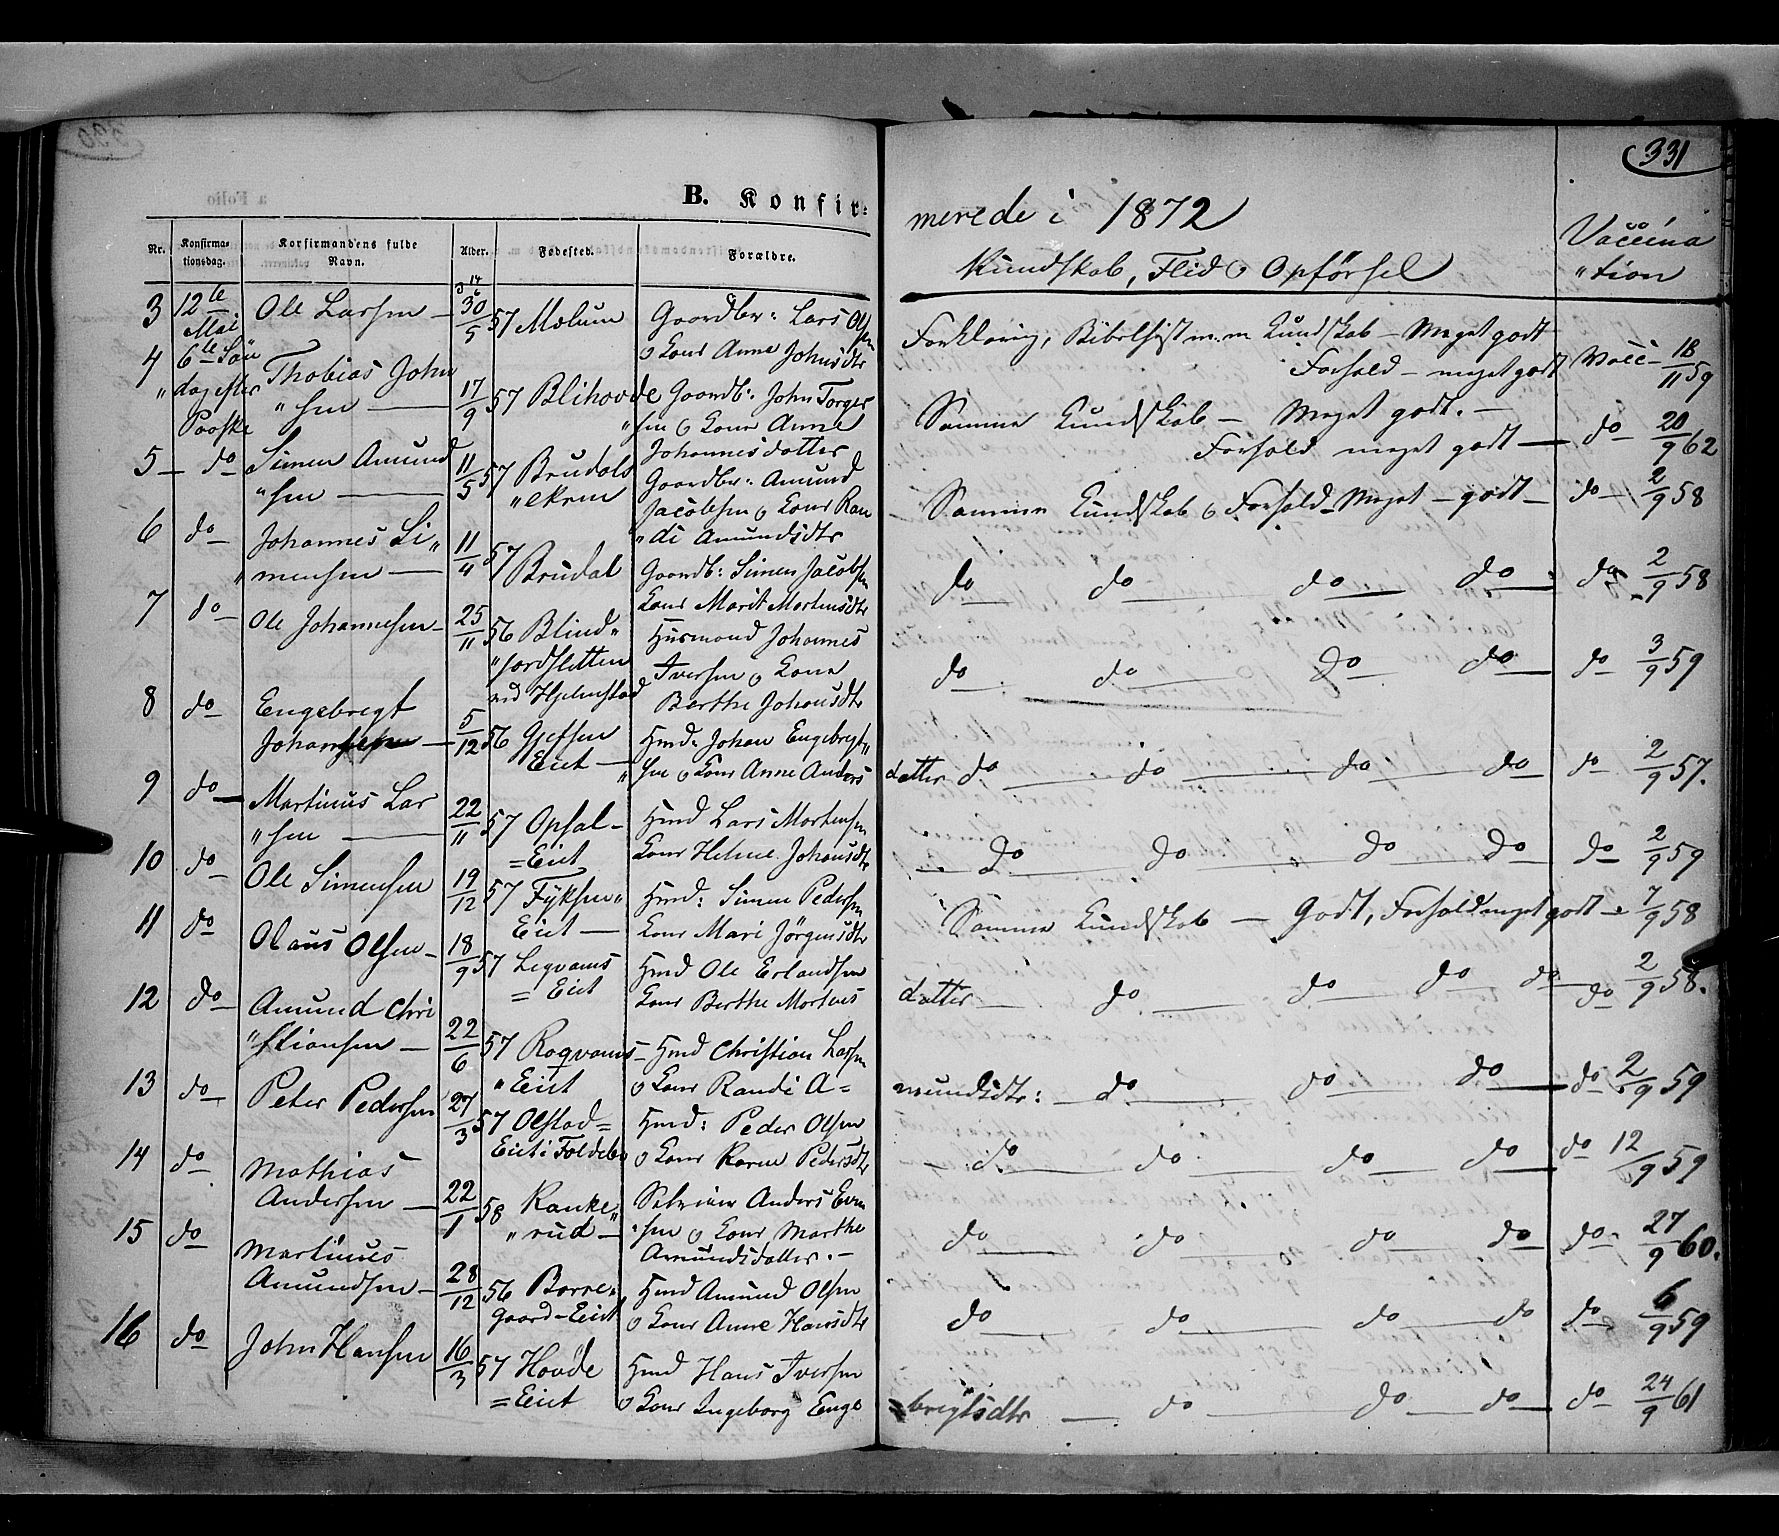 331
B. Konfir=
merede i 1872
Nr. Konfirma= tionsdag. Korfirmandens fulde Navn. Alder. Fødested. Forældre.
Kundskab, Flid o Opførsel
Vaccina
"tion
3 12te Mai Ole Larsen 30/5 57 Mælum Gaardbr: Lars Olsen
o Kone Anne Johnsdtr
Forklaring, Bibelhist m. m Kundskab – Meget godt
Forhold – meget godt Vacc – 18/11 59
4 6te Søn
"dag efter
Paaske
Thobias John
"sen 17/9 57 Blihovde Gaardb: John Torger
"sen o Kone Anne
Johannesdatter
Samme Kundskab – Meget godt. –
Forhold meget godt – do 20/9 62
5 do Simen Amund
"sen 11/5 57 Brudals
"ekren Gaardbr: Amund
Jacobsen o Kone Ran
"di Amundsdtr
Samme Kundskab o Forhold Meget – godt – do 2/9 58
6 do Johannes Si"
"mensen 11/4 57 Brudal Gaardb: Simen Jacobsen
Kone Marit Mortensdtr
do do do do do 2/9 58
7 do Ole Johannesen 25/11 56 Blind"
"jordsletten
ved Hjelmstad Husmand Johannes
Iversen o Kone
Berthe Johansdtr
do do do do do 3/9 59
8 do Engebregt
Johansen 5/12 56 Gjessen
Eiet Hmd: Johan Engebregt"
"sen o Kone Anne Anders
datter do do do do do 2/9 57.
9 do Martinus Lar
"sen 22/11 57 Opsal
=Eiet Hmd Lars Mortensen
Kone Helene Johansdtr
do do do do do 2/9 59
10 do Ole Simensen 19/12 57 Fyksen"
Eiet Hmd: Simen Pedersen
Kone Mari Jörgensdtr
Samme Kundskab – Godt, Forhold meget godt – 7/9 58
11 do Olaus Olsen 18/9 57 Leqvams
=Eiet Hmd Ole Erlandsen
Kone Berthe Mortens
datter do do do do do 2/9 58.
12 do Amund Chri
"stiansen 22/6 57 Roqvams
"Eiet Hmd Christian Larsen
o Kone Randi A=
mundsdtr: do do do do 2/9 59
13 do Peter Pedersen 27/3 57 Olstad=
Eiet i Foldebu Hmd: Peder Olsen
o Kone Karen Pedersdtr
do do do do do 12/9 59
14 do Mathias
Andersen 22/1 58 Ranke"
"rud Selveier Anders Even
"sen o Kone Marthe
Amundsdatter. –
do do do do do 27/9 60.
15 do Martinus
Amundsen 28/12 56 Borre"
gaard-Eiet Hmd Amund Olsen
o Kone Anne Hansdtr
do do do do do 6/9 59
16 do John Hansen 16/3 57 Hovde
=Eiet Hmd Hans Iversen
o Kone Ingeborg Enge
=brigtsdtr do do do do 24/9 61